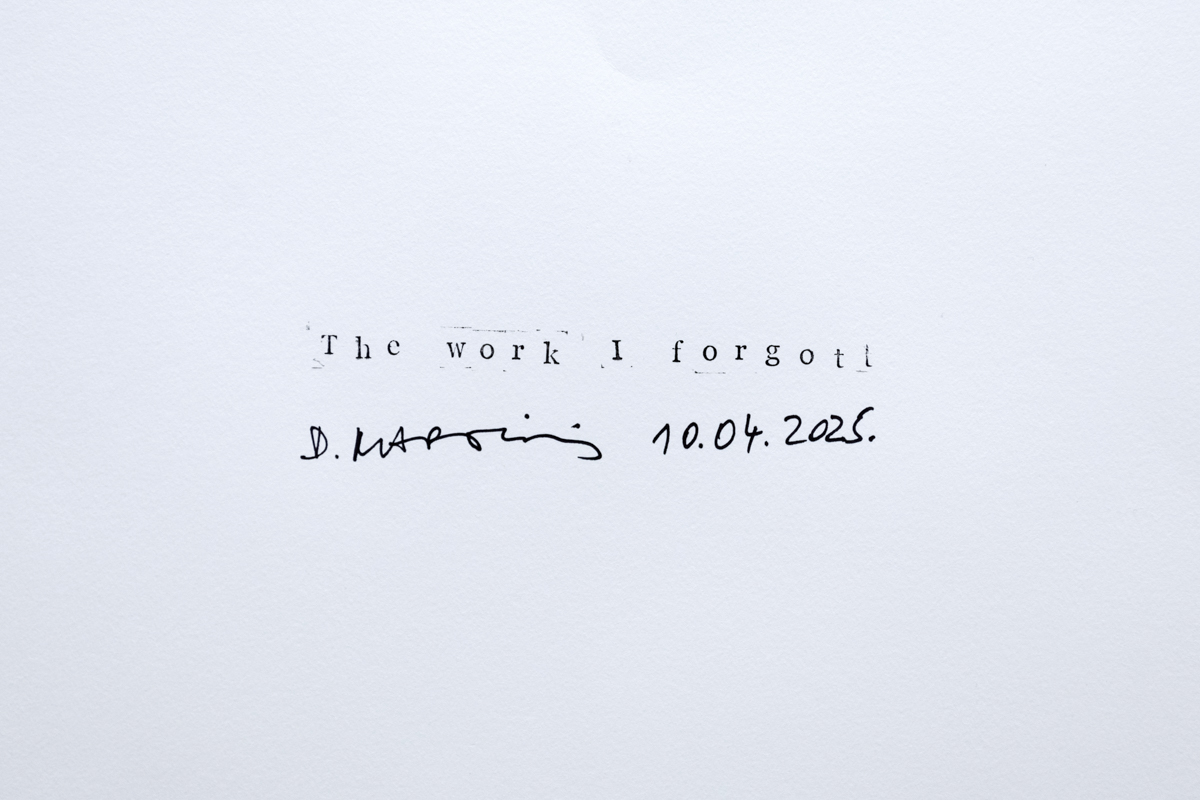 The work I forgot!
D. MARTinis 10.04.2025.